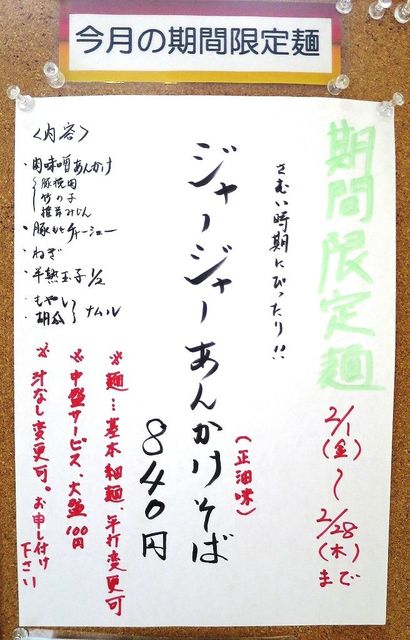 今月の期間限定麺
期間限定麺
2/1(金)～2/28(木)まで
さむい時期にぴったり!!
ジャージャーあんかけそば
(正油味)
840円
<内容>
・肉味噌あんかけ
豚挽肉
竹の子
椎茸みじん
・豚ももチャーシュー
・ねぎ
・半熟玉子1/2
・もやし
・胡瓜
ナムル
※麺…基本細麺、平打変更可
※中盛サービス、大盛100円
※汁なし変更可。お申し付け下さい